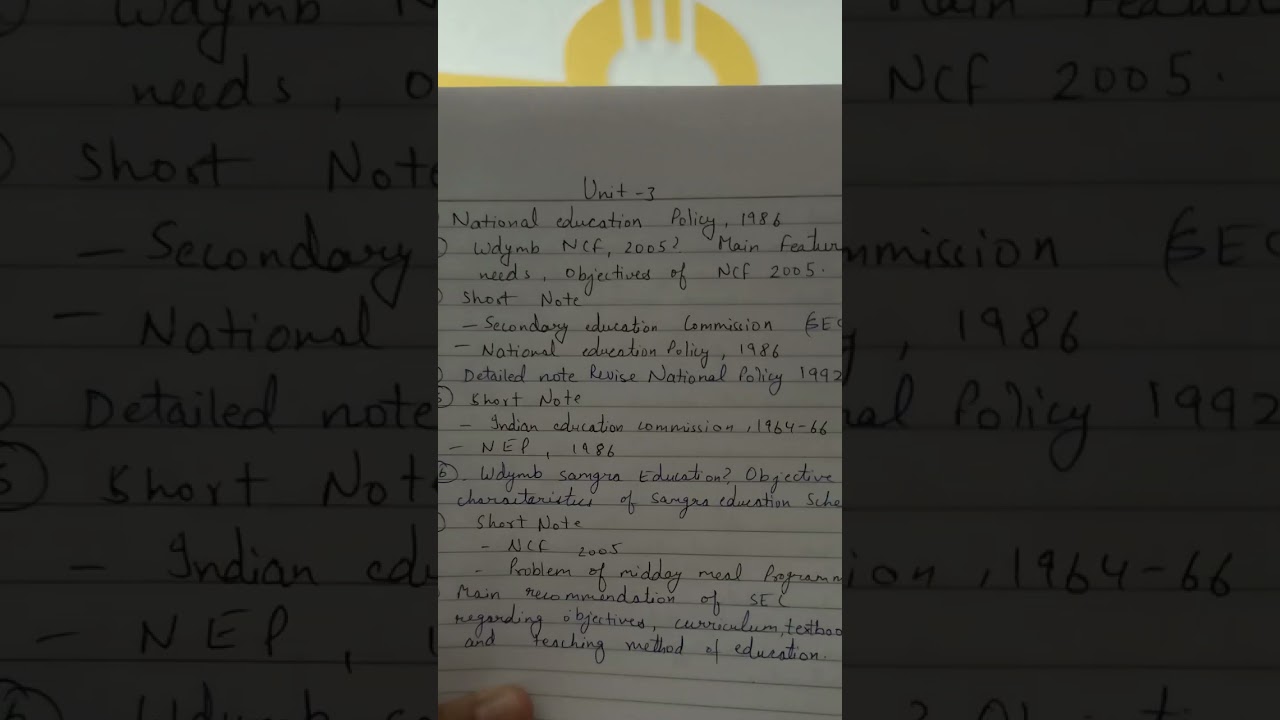 Unit - 3
National education Policy, 1986
Wdymb NCF, 2005? Main Featur
needs, Objectives of NCF 2005.
Short Note
- Secondary education Commission (SEC
- National education Policy, 1986
Detailed note Revise National Policy 1992
5 Short Note
- Indian education commission, 1964-66
- NEP, 1986
6. Wdymb samgra Education? Objective
characteristics of Samgra education Sche
Short Note
- NCF 2005
- Problem of midday meal Programm
Main recommendation of SEC
regarding objectives, curriculum, textboo
and teaching method of education.